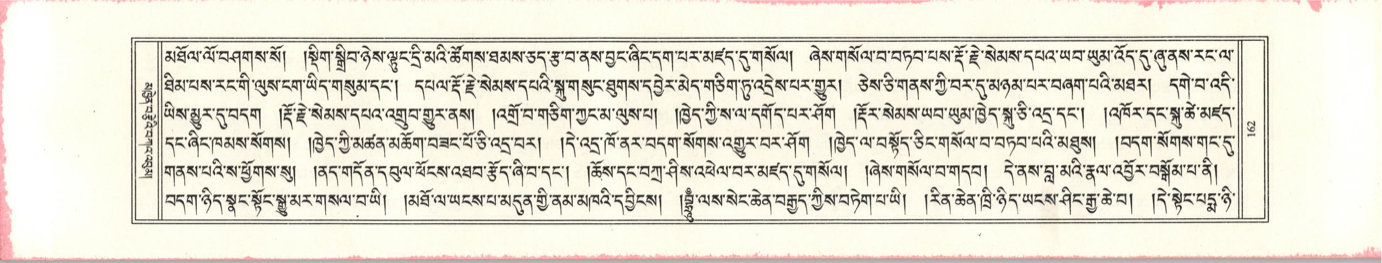 མཐོལ་ལོ་བཤགས་སོ། །སྡིག་སྒྲིབ་ཉེས་ལྟུང་དྲི་མའི་ཚོགས་ཐམས་ཅད་རྩ་བ་ནས་བྱང་ཞིང་དག་པར་མཛད་དུ་གསོལ། ཞེས་གསོལ་བ་བཏབ་པས་རྡོ་རྗེ་སེམས་དཔའ་ཡབ་ཡུམ་འོད་དུ་ཞུ་ནས་རང་ལ་
ཐིམ་པས་རང་གི་ལུས་ངག་ཡིད་གསུམ་དང་། དཔལ་རྡོ་རྗེ་སེམས་དཔའི་སྐུ་གསུང་ཐུགས་དབྱེར་མེད་གཅིག་ཏུ་འདྲེས་པར་གྱུར། ཅེས་ཅི་གནས་ཀྱི་བར་དུ་མཉམ་པར་བཞག་པའི་མཐར། དགེ་བ་འདི་
ཡིས་མྱུར་དུ་བདག །རྡོ་རྗེ་སེམས་དཔའ་འགྲུབ་གྱུར་ནས། །འགྲོ་བ་གཅིག་ཀྱང་མ་ལུས་པ། །ཁྱེད་ཀྱི་ས་ལ་དགོད་པར་ཤོག །རྡོར་སེམས་ཡབ་ཡུམ་ཁྱེད་སྐུ་ཅི་འདྲ་དང་། །འཁོར་དང་སྐུ་ཚེ་མཛད་
དང་ཞིང་ཁམས་སོགས། །ཁྱེད་ཀྱི་མཚན་མཆོག་བཟང་པོ་ཅི་འདྲ་བར། །དེ་འདྲ་ཁོ་ནར་བདག་སོགས་འགྱུར་བར་ཤོག །ཁྱེད་ལ་བསྟོད་ཅིང་གསོལ་བ་བཏབ་པའི་མཐུས། །བདག་སོགས་གང་དུ་
གནས་པའི་ས་ཕྱོགས་སུ། །ནད་གདོན་དབུལ་ཕོངས་འཐབ་རྩོད་ཞི་བ་དང་། །ཆོས་དང་བཀྲ་ཤིས་འཕེལ་བར་མཛད་དུ་གསོལ། །ཞེས་གསོལ་བ་གདབ། དེ་ནས་བླ་མའི་རྣལ་འབྱོར་བསྒོམ་པ་ནི།
བདག་ཉིད་སྣང་སྟོང་སྒྱུ་མར་གསལ་བ་ཡི། །མཐོ་ལ་ཡངས་པ་མདུན་གྱི་ནམ་མཁའི་དབྱིངས། །བྷྲཱུྃ་ལས་སེང་ཆེན་བརྒྱད་ཀྱིས་བཏེག་པ་ཡི། །རིན་ཆེན་ཁྲི་ཉིད་ཡངས་ཤིང་རྒྱ་ཆེ་བ། །དེ་སྟེང་པདྨ་ཉི་
162